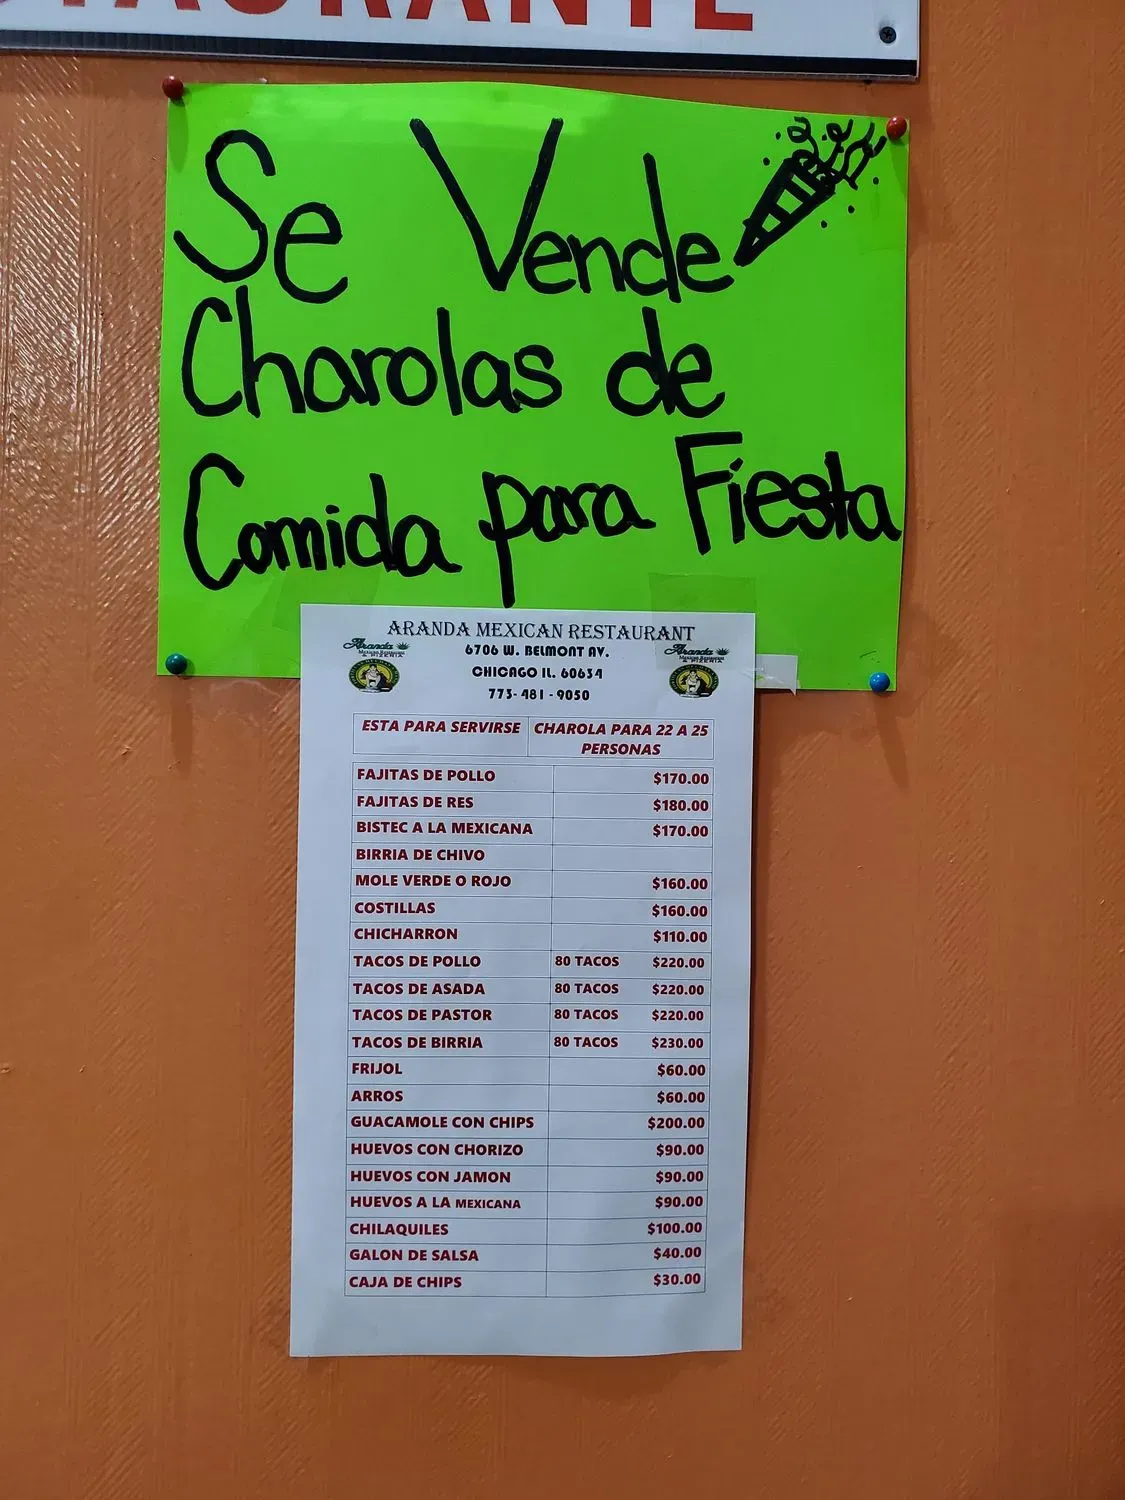 Se Vende
Charolas de
Comida para Fiesta
ARANDA MEXICAN RESTAURANT
6706 W. BELMONT AV.
CHICAGO IL. 60634
773-481-9050
Aranda
Aranda
ESTA PARA SERVIRSE CHAROLA PARA 22 A 25
PERSONAS
FAJITAS DE POLLO $170.00
FAJITAS DE RES $180.00
BISTEC A LA MEXICANA $170.00
BIRRIA DE CHIVO
MOLE VERDE O ROJO $160.00
COSTILLAS $160.00
CHICHARRON $110.00
TACOS DE POLLO 80 TACOS $220.00
TACOS DE ASADA 80 TACOS $220.00
TACOS DE PASTOR 80 TACOS $220.00
TACOS DE BIRRIA 80 TACOS $230.00
FRIJOL $60.00
ARROS $60.00
GUACAMOLE CON CHIPS $200.00
HUEVOS CON CHORIZO $90.00
HUEVOS CON JAMON $90.00
HUEVOS A LA MEXICANA $90.00
CHILAQUILES $100.00
GALON DE SALSA $40.00
CAJA DE CHIPS $30.00